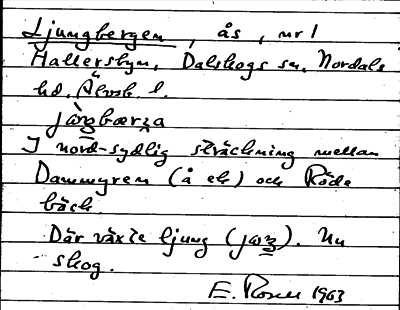 Ljungbergen, ås, nr 1
Hallerebyn, Dalskogs sn. Nordals
hd. Älvsb. l.
I nord-sydlig sträckning mellan
Dammyren (å ek) och Röde
bäck.
Där växte ljung (). Nu
skog.
E. Rosell 1963